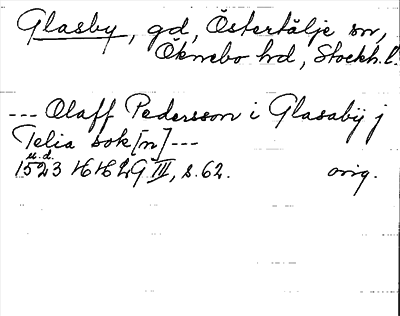 Glasby, gd, Östertälje sn,
Öknebo hd, Stockh. l.
--- Olaff Pedersson i Glasabÿ j
Telia sok[n] ---
u.d.
1523 HH 29 III, s. 62. orig.